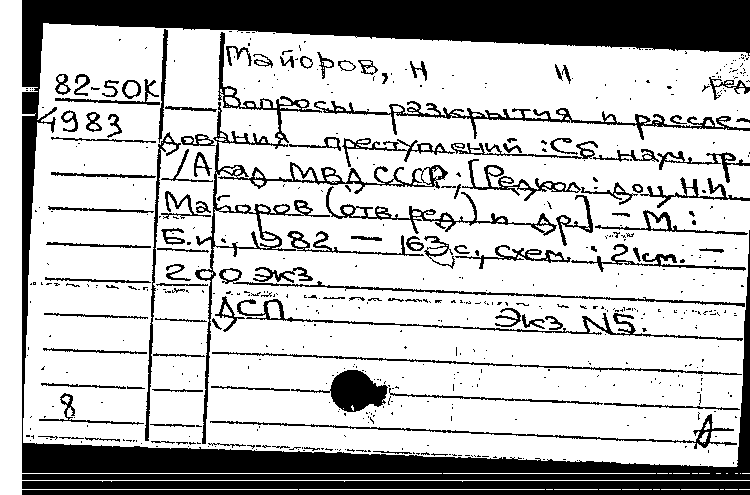 Майоров, Н И ред.
82-5ОК
Вопросы раскрытия и рассле-
4983
дования преступлений : Сб. науч. тр.
/Акад. МВД СССР; [Редкол.: доц. Н.И.
Майоров (отв. ред.) и др.] – М. :
Б.и., 1982. – 163 с., схем. ; 21см. –
200 экз.
ДСП. Экз N5.
8